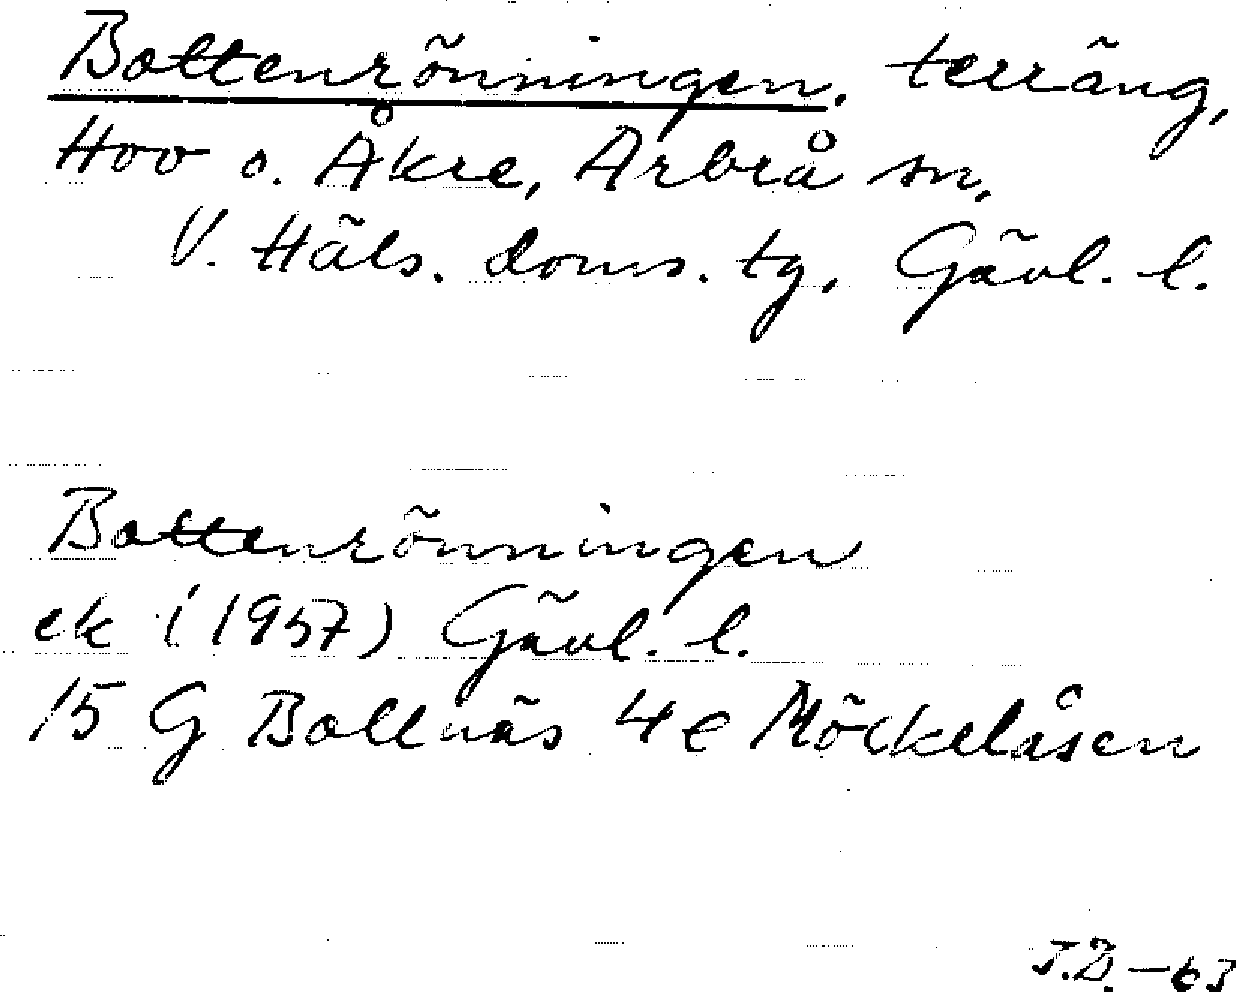 Bottenrönningen, terräng,
Hov o. Åkre, Arbrå sn,
V. Häls. doms. tg, Gävl. l.
Bottenrönningen
ek (1957) Gävl. l.
15 G Bollnäs 4 e Möckelåsen
J.D. -63